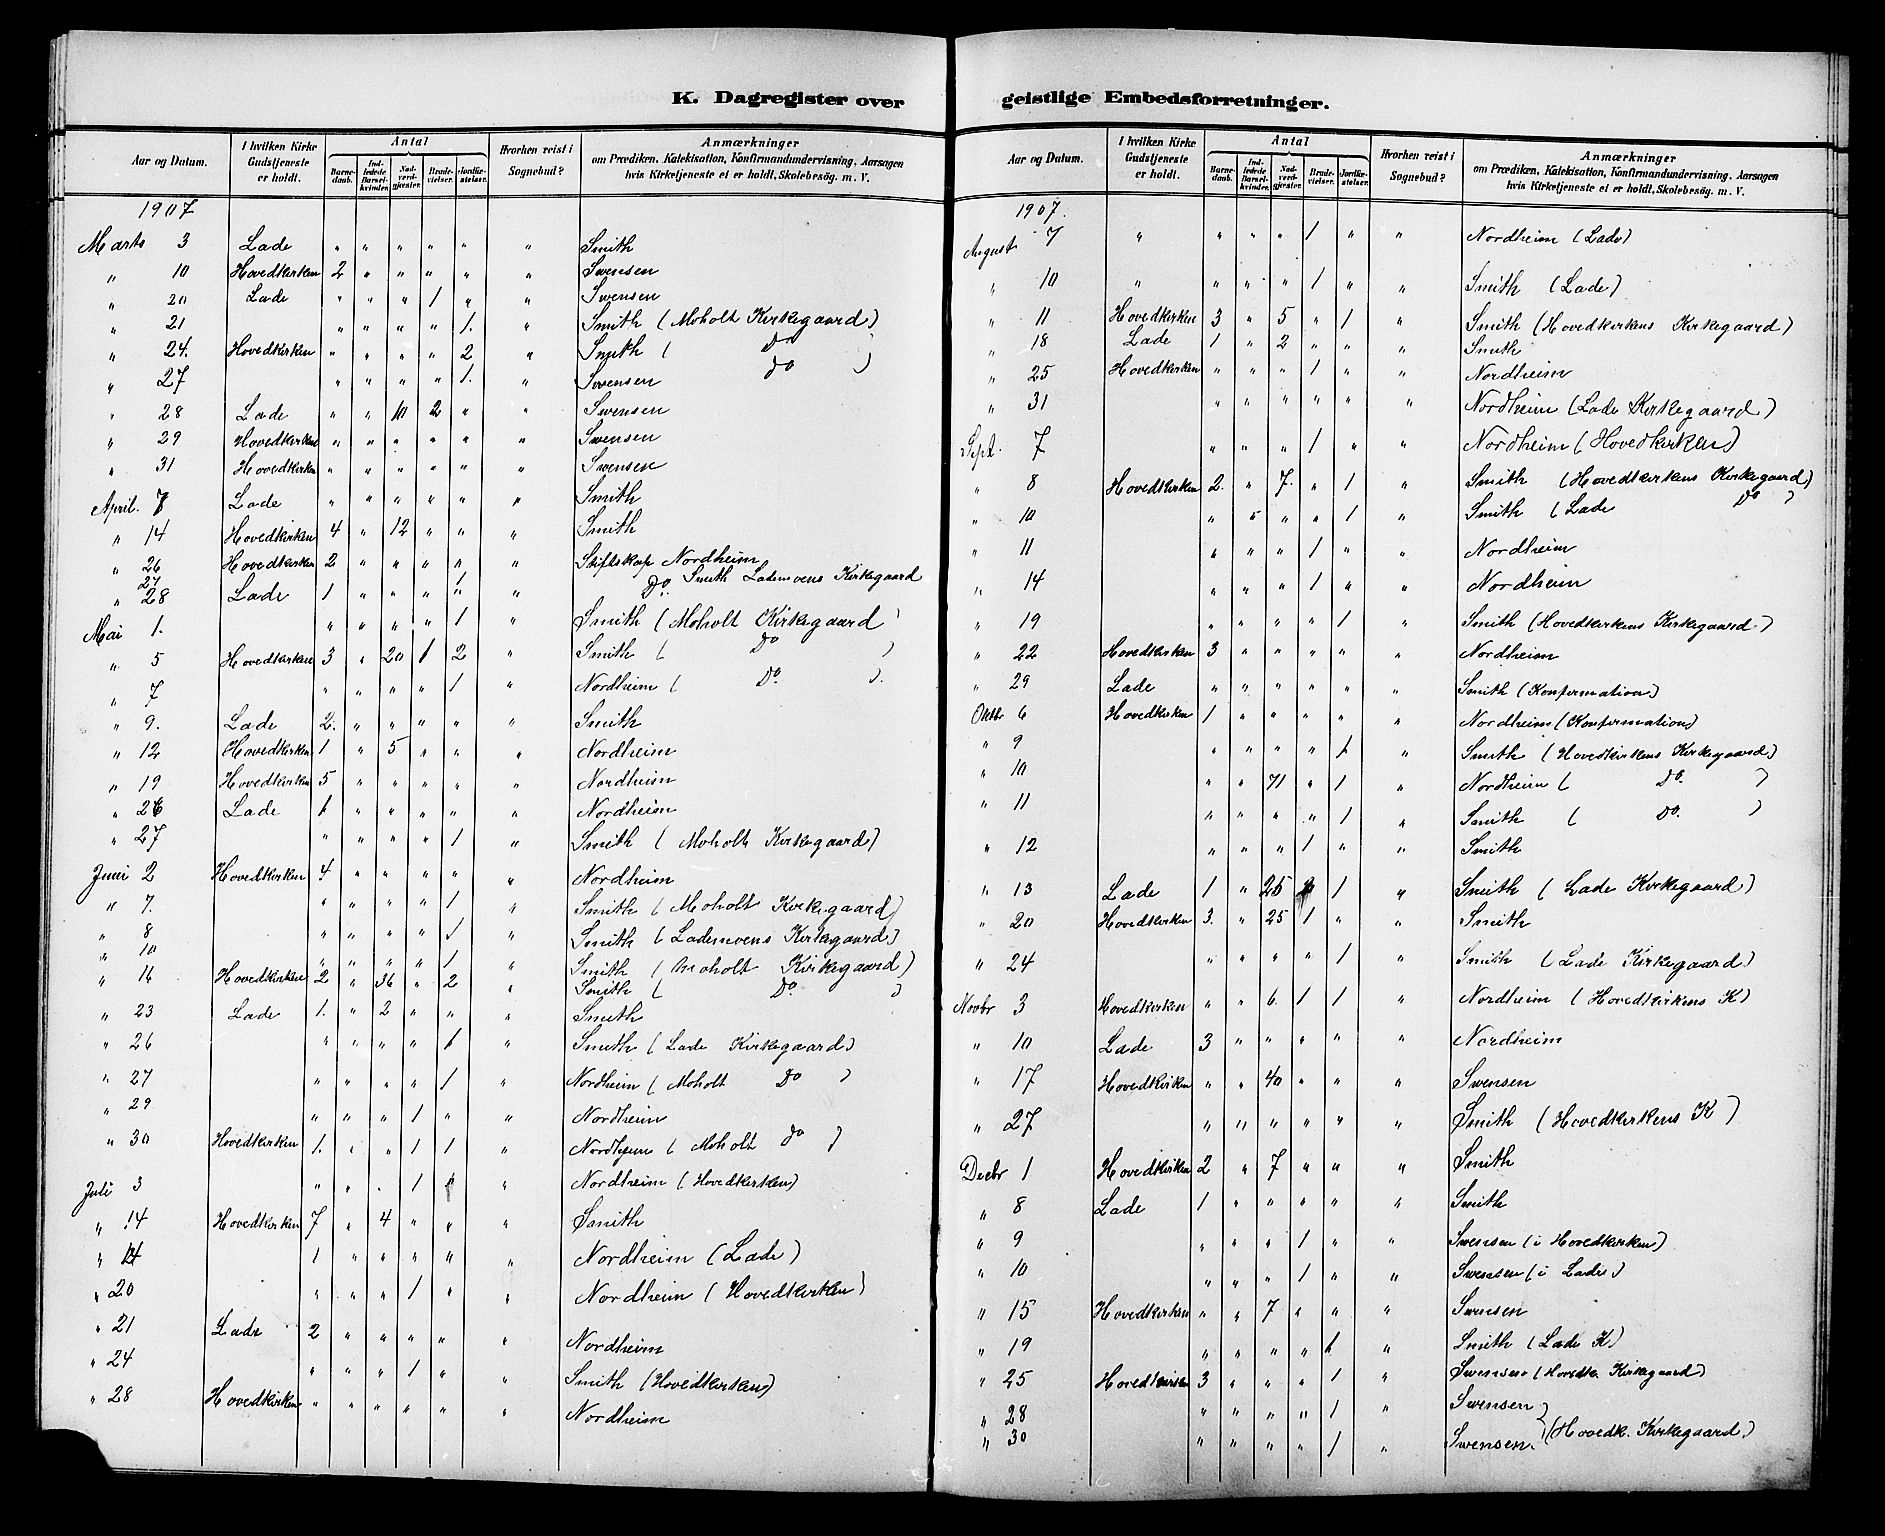 K. Dagregister over
Aar og Datum. I hvilken Kirke Gudstjeneste er holdt. Antal Barnedaab. Indledede Barselkvinder. Nadverdgjester. Brudevielser. Jordfæstelser. Hvorhen reist i Sognebud? Anmærkninger om Prædiken, Katekisation, Konfirmandundervisning, Aarsagen hvis Kirketjeneste ei er holdt, Skolebesög. m. V.
1907
Marts 3 Lade " " " " " " Smith
" 10 Hovedkirken 2 " " " " " Swensen
" 20 Lade " " " 1 " " Swensen
" 21 " " " " 1. " Smith (Moholt Kirkegaard)
" 24. Hovedkirken " " " " 2 " Smith ( Do
" 27 " " " " 1. " Swensen do )
" 28 Lade " " 10 2 " Swensen
" 29 Hovedkirken " " " " " " Swensen
" 31 Hovedkirken " " " " " " Swensen
April. 7 Lade " " " " " " Smith
" 14 Hovedkirken 4 " 12 " " " Smith
" 26 Hovedkirken 2 " " " " " Stiftskap Nordheim
27 1 Smith Lademoens Kirkegaard
" 28 Lade 1 " " " " " Do.
Mai 1. " " " " 1 " Smith (Moholt Kirkegaard)
" 5 Hovedkirken 3 " 20 1 2 " Smith ( Do )
" 7 " " " " 1 " Nordheim ( Do. ).
" 9. Lade 2. " " " " " Smith
" 12 Hovedkirken 1 " 5 " " " Nordheim
" 19 Hovedkirken 5 " " " " " Nordheim
" 26 Lade 1 " " " " " Nordheim
" 27 " " " " 1 " Smith ( Moholt Kirkegaard)
Juni 2 Hovedkirken 4 " " " " " Nordheim
" 7. " " " " 1 " Smith ( Moholt Kirkegaard)
" 8 " " " " 1 " Smith (Lademoens Kirkegaard)
" 10 " " " " 1 " Smith ( Moholt Kirkegaard)
" 16 Hovedkirken 2 " 36 " 2 " Smith ( Do. )
" 23 Lade 1. " 2 " " " Smith
" 26 " " " " 1 " Smith (Lade Kirkegaard)
" 27 " " " " 1 " Nordheim (Moholt Do )
" 29 " " " 1 " " Nordheim
" 30 Hovedkirken 1. " " 1 1 " Nordheim ( Moholt do )
Juli 3 " " . 1 " Nordheim (Hovedkirken)
" 14 Hovedkirken 7 " 4 " " " Smith
" 14 1 " " " " " Nordheim (Lade)
" 20 " " " 1 " " Nordheim (Hovedkirken)
" 21 Lade 2 " " " " " Nordheim
" 24 " " " 1 " Smith (Hovedkirken)
" 28 Hovedkirken " " " " " " Nordheim
geistlige Embedsforretninger.
Aar og Datum. I hvilken Kirke Gudstjeneste er holdt. Antal Barnedaab. Indledede Barselkvinder. Nadverdgjester. Brudevielser. Jordfæstelser. Hvorhen reist i Sognebud? Anmærkninger om Prædiken, Katekisation, Konfirmandundervisning, Aarsagen hvis Kirketjeneste ei er holdt, Skolebesög. m. V.
1907.
August 7 " " " " 1 " " Nordheim (Lade)
" 10 " " " " 1 " " Smith (Lade)
" 11 Hovedkirken 3 " 5 " 1 " Smith (Hovedkirkens Kirkegaard)
" 18 Lade 1 " 2 " " " Smith
" 25 Hovedkirken " " " 1 " " Nordheim
" 31 " " " " " " Nordheim (Lade Kirkegaard)
Sept. 7 " " " 1 " " Nordheim (Hovedkirken)
" 8 Hovedkirken 2. " 7. " 1 " Smith (Hovedkirkens Kirkegaard)
" 10 " " " " 1 " Smith (Lade Do )
" 11 " " " 1 " " Nordheim
" 14 " " " 1 " " Nordheim
" 19 " " " " 1 " Smith (Hovedkirkens Kirkegaard)
" 22 Hovedkirken 3 " " " " " Nordheim
" 29 Lade " " " " " " Smith (Konfirmation)
Oktbr 6 Hovedkirken 1 " " " " " Nordheim (Konfirmation)
" 9 " " " " 1 " Smith (Hovedkirkens Kirkegaard)
" 10 " " 71 " 1 " Nordheim ( Do. )
" 11 " " " " 1 " Smith ( Do. )
" 12 " " " 1 " " Smith
" 13 Lade 1 " 26 1 " Smith (Lade Kirkegaard)
" 20 Hovedkirken 3. " 25 1 " " Smith
" 24 " " " " 1 " Smith (Lade Kirkegaard)
Novbr 3 Hovedkirken " " 6. 1 1 " Nordheim (Hovedkirkens K)
" 10 Lade 3 " " " " " Nordheim
" 17 Hovedkirken " " 40 " " " Swensen
" 27 " " " " " " Smith (Hovedkirkens K)
Decbr 1 Hovedkirken 2 " 7 " " " Smith
" 8 Lade 1 " " " " " Smith
" 9 " " " 1 " " Swensen (i Hovedkirken)
" 10 " " " 1 " " Swensen (i Lade)
" 15 Hovedkirken " " 7 " " " Swensen
" 19 " " " " 1 " Smith (Lade K)
" 25 Hovedkirken 3 " " " 1 " Swensen (Hovedk. Kirkegaard)
" 28 " " " " 1 " Swensen
" 30 " " " " 1 " Swensen (Hovedk. Kirkegaard)